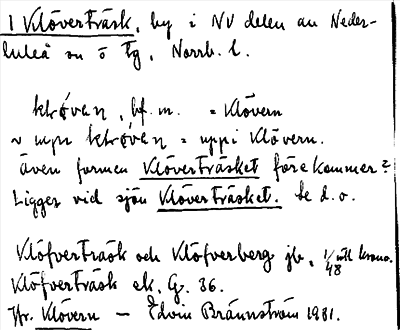 1 Klöverträsk, by i NV delen av Neder-
luleå sn ö tg, Norrb. l.
klǿvan, bf. m. = Klövern
~ upı klǿvan = uppi Klövern.
även formen Klöverträsket förekommer?
Ligger vid sjön Klöverträsket. Se d. o.
Klöfverträsk och Klöfverberg jb, 1/48 mtl krono.
Klöfverträsk ek. G. 36.
Jfr. Klövern — Edvin Brännström 1931.